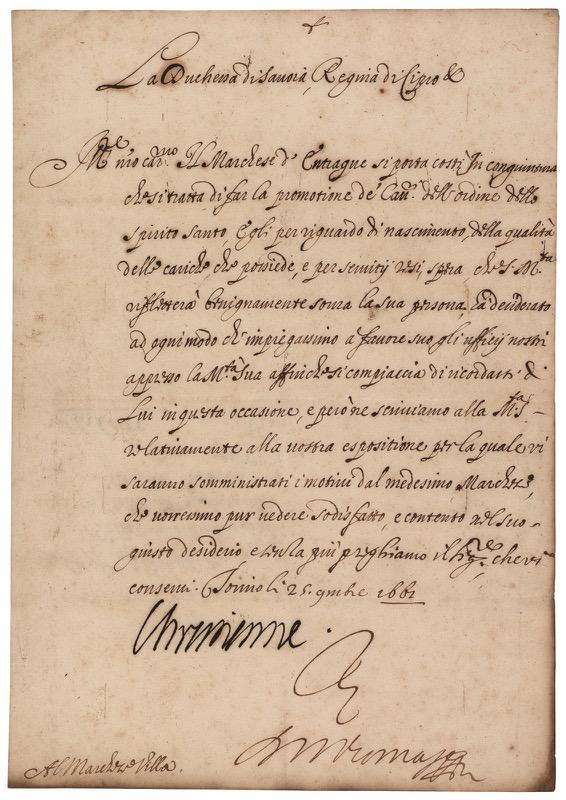 La Duchessa di Savoia, Regina di Cipro &
Mre mio carmo Il Marchese d'Entrague si porta costì in congiuntura
che si tratta di far la promotione de Cau.ri dell'ordine dello
spirito santo Egli per riguardo di nascimento, della qualità
delle cariche che possiede, e per seruitij resi, spera che S. Mtà
rifletterà benignamente soura la sua persona. Hà desiderato
ad ogni modo ch'impiegassimo a fauore suo gli ufficij nostri
appresso la Mtà Sua affinche si compiaccia di ricordarsi di
Lui in questa occasione, e però ne scriuiamo alla Mtà S.
relatiuamente alla uostra espositione per la quale vi
saranno somministrati i motiui dal medesimo Marchese,
che uorressimo pur uedere sodisfatto, e contento nel suo
giusto desiderio e senza più preghiamo il Sigre che vi
conserui. Torino li 25. 9mbre 1661
Chrestienne.
Al Marchese Villa.